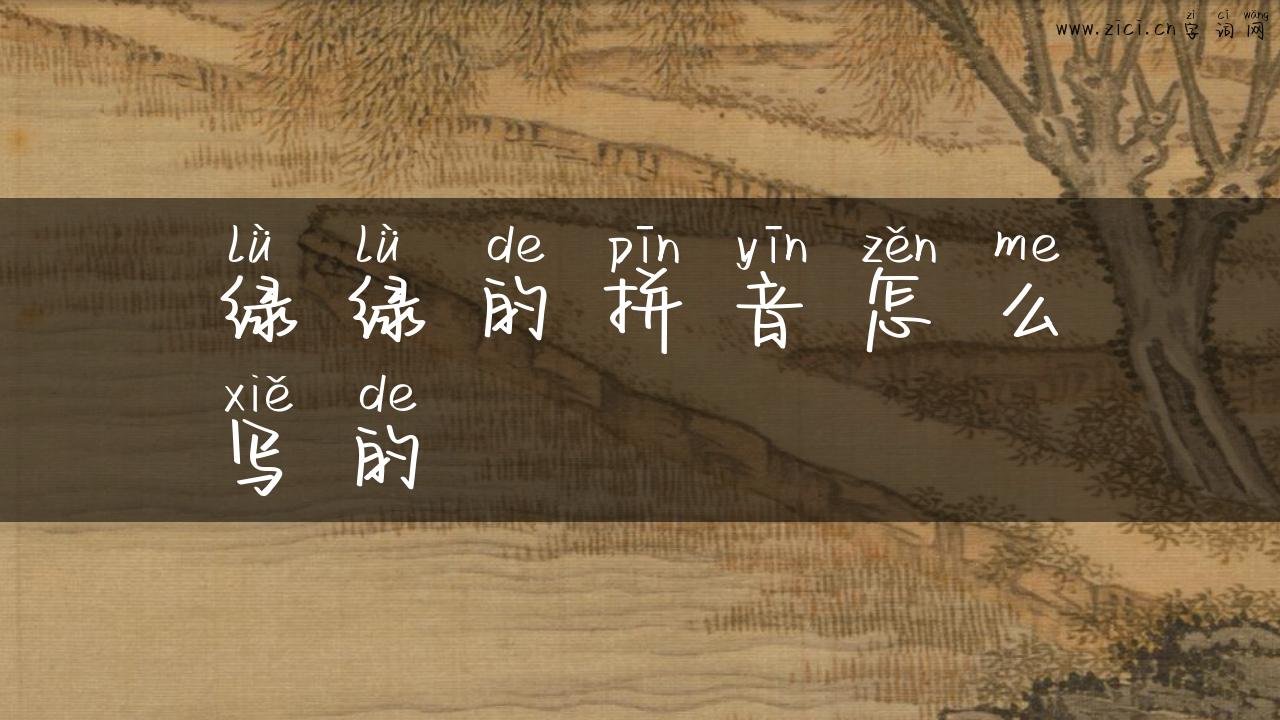 zì cí wǎng
www.zici.cn 字词网
lǜ lǜ de pīn yīn zěn me
绿绿的拼音怎么
xiě de
写的